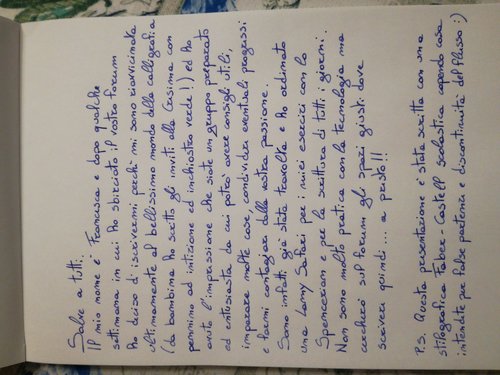 Salve a tutti.
Il mio nome è Francesca e dopo qualche
settimana in cui ho sbirciato il vostro forum
ho deciso di iscrivermi perché mi sono riavvicinata
ultimamente al bellissimo mondo della calligrafia
(da bambina ho scritto gli inviti alla Cresima con
pennino ad intinzione ed inchiostro verde!) ed ho
avuto l'impressione che siate un gruppo preparato
ed entusiasta da cui potrò avere consigli utili,
imparare molte cose, condividere eventuali progressi
e farmi contagiare dalla vostra passione.
Sono infatti già stata travolta e ho ordinato
una Lamy Safari per i miei esercizi con lo
Spencerian e per la scrittura di tutti i giorni.
Non sono molto pratica con la tecnologia ma
cercherò sul forum gli spazi giusti dove
scrivere quindi... a presto!!
P.S. Questa presentazione è stata scritta con una
stilografica Faber-Castell scolastica capendo cosa
intendete per false partenze e discontinuità del flusso :)